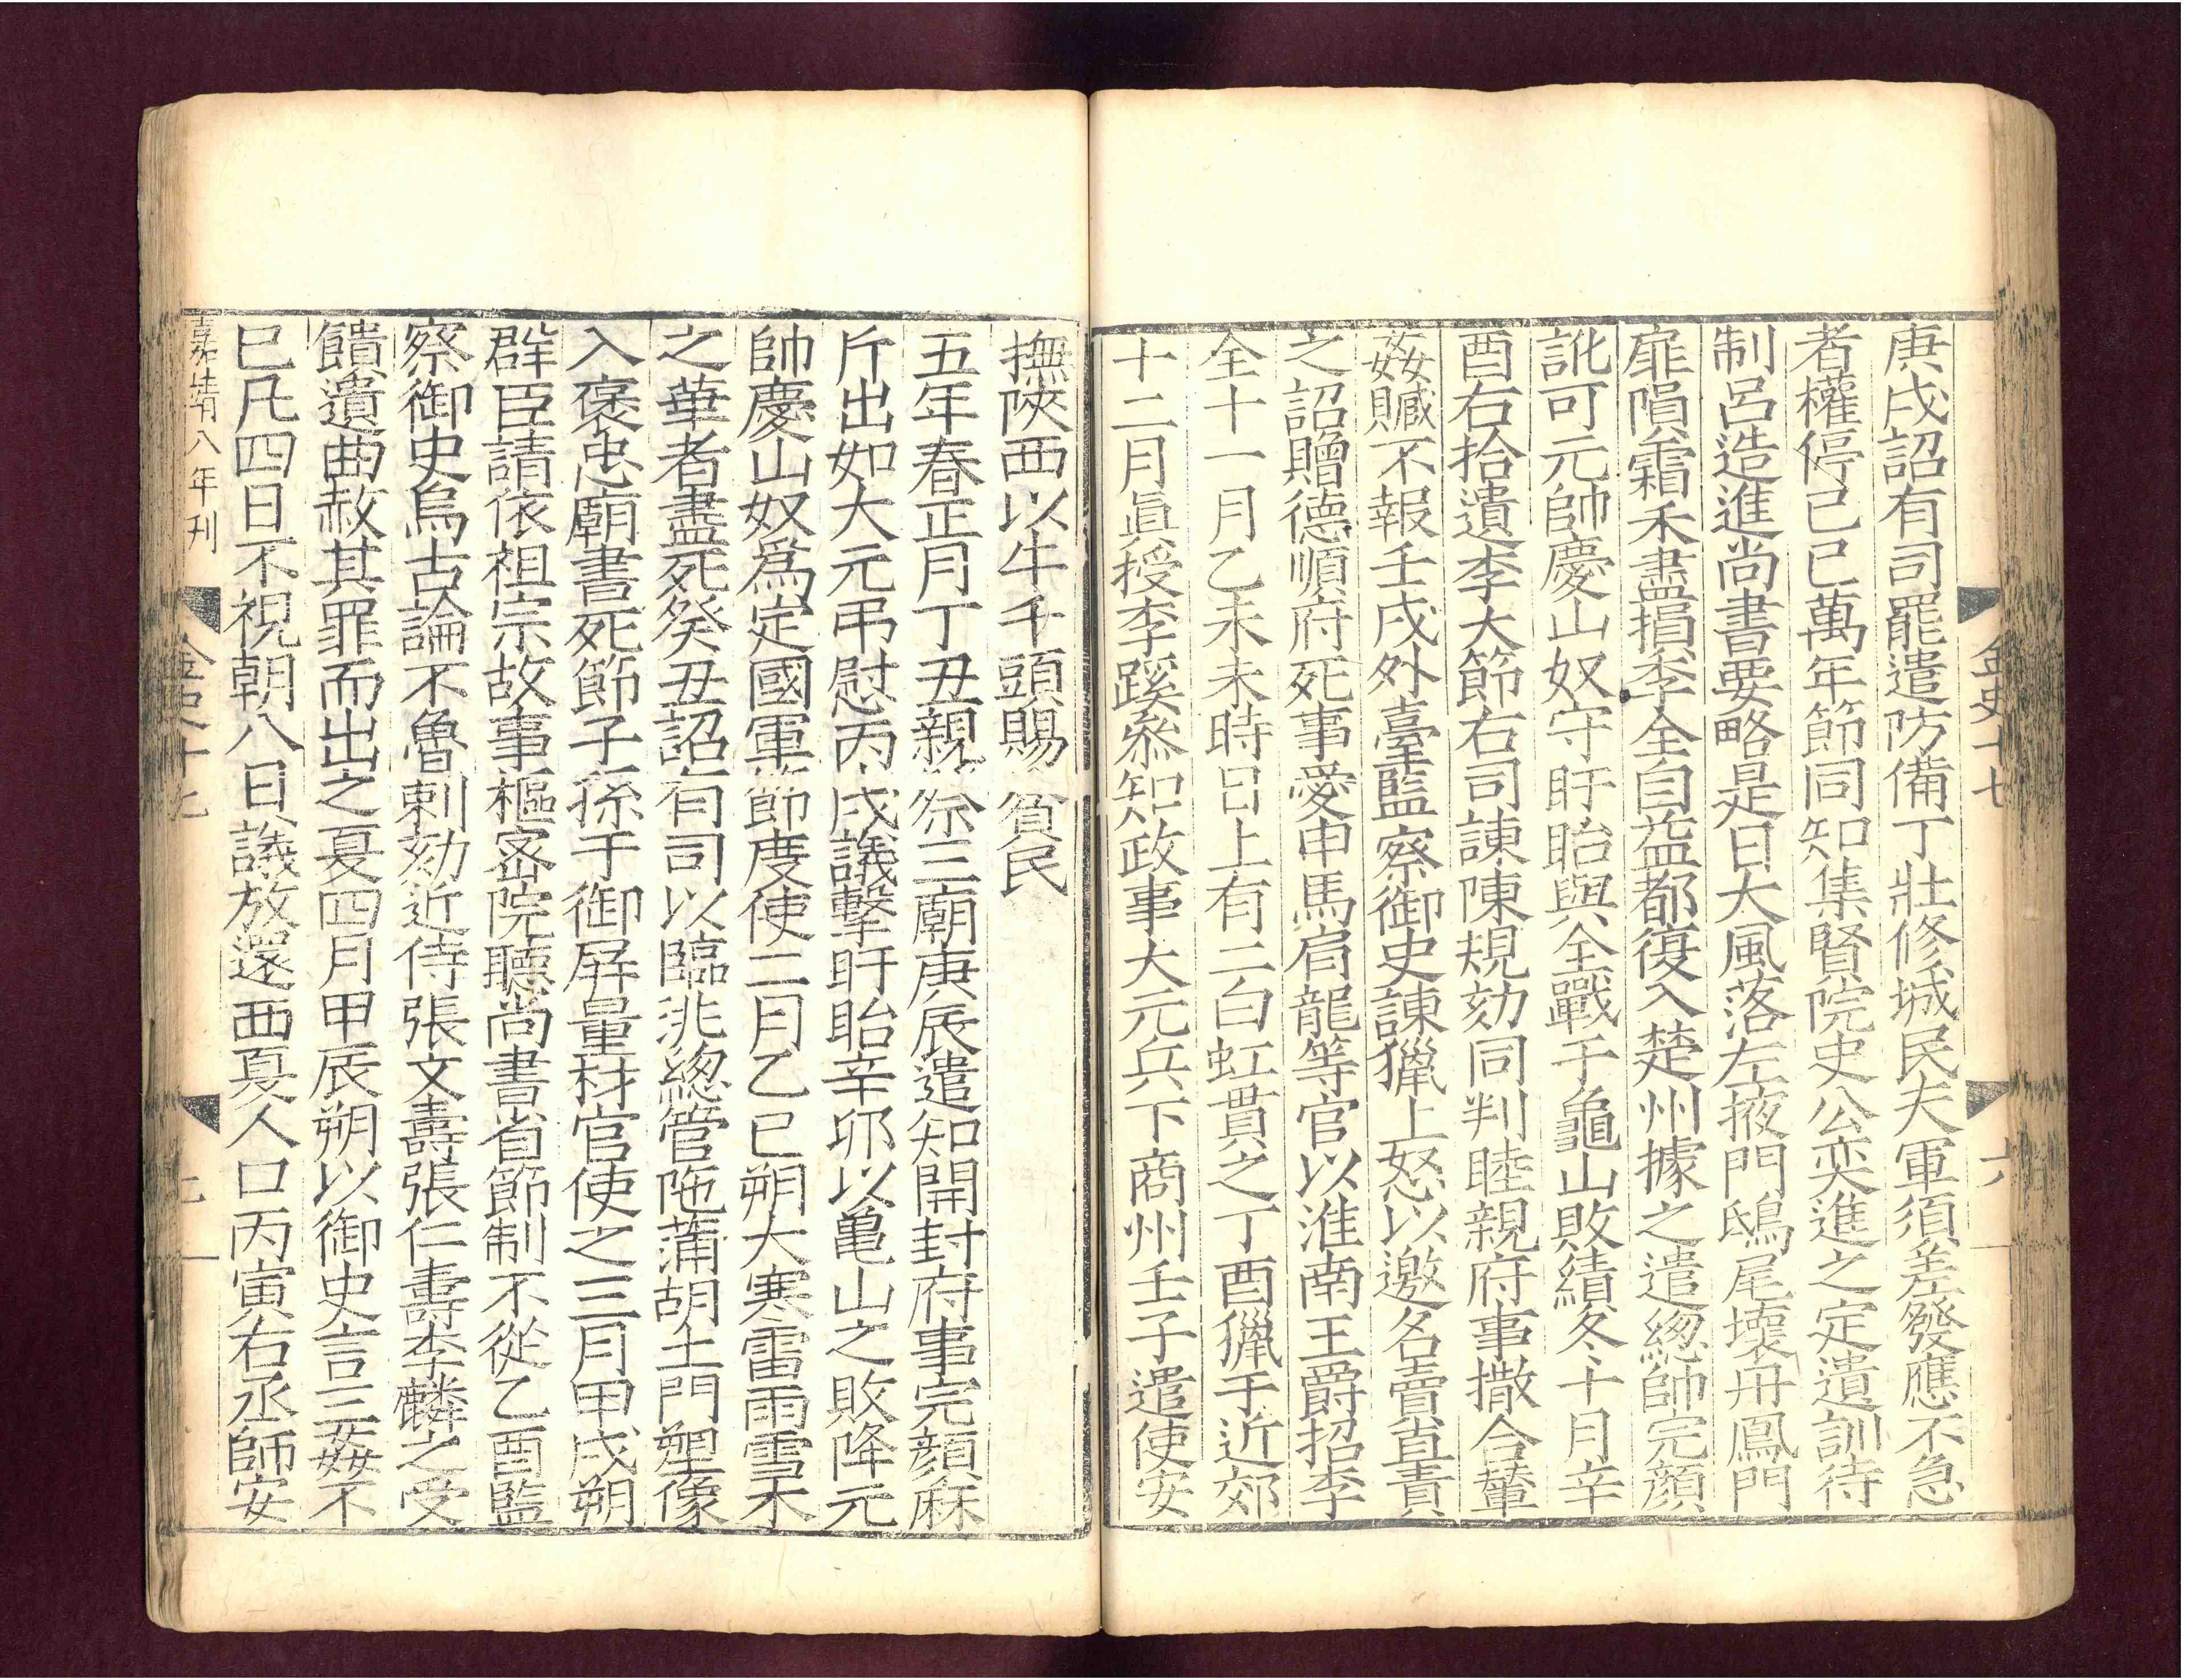 庚戌詔有司罷遣防備丁壯修城民夫軍須差發應不急
者權停己巳萬年節同知集賢院史公奕進之定遺訓待
制呂造進尚書要略是日大風落左掖門鴟尾壞丹鳳門
扉隕霜禾盡損李全自益都復入楚州據之遣緫帥完顏
訛可元帥慶山奴守盱眙與全戰于龜山敗績冬十月辛
酉右拾遺李大節右司諫陳規劾同判睦親府事撒合輦
姦贓不報壬戌外臺監察御史諫獵上怒以邀名賣直責
之詔贈德順府死事愛申馬肩龍等官以淮南王爵招李
全十一月乙未未時日上有二白虹貫之丁酉獵于近郊
十二月眞授李蹊叅知政事大元兵下商州壬子遣使安
撫陝西以牛千頭賜貧民
五年春正月丁丑親祭三廟庚辰遣知開封府事完顏麻
斤出如大元弔慰丙戌議擊盱眙辛卯以亀山之敗降元
帥慶山奴爲定國軍節度使二月乙巳朔大寒雷雨雪木
之華者盡死癸丑詔有司以臨洮緫管陁蒲胡土門塑像
入褒忠廟書死節子孫于御屏量材官使之三月甲戌朔
群臣請依祖宗故事樞密院聽尚書省節制不從乙酉監
察御史烏古論不魯剌劾近侍張文壽張仁壽李麟之受
饋遺曲赦其罪而出之夏四月甲辰朔以御史言三姦不
已凡四日不視朝八日議放還西夏人口丙寅右丞師安
嘉靖八年刊
金史十七
六
金史十七
七